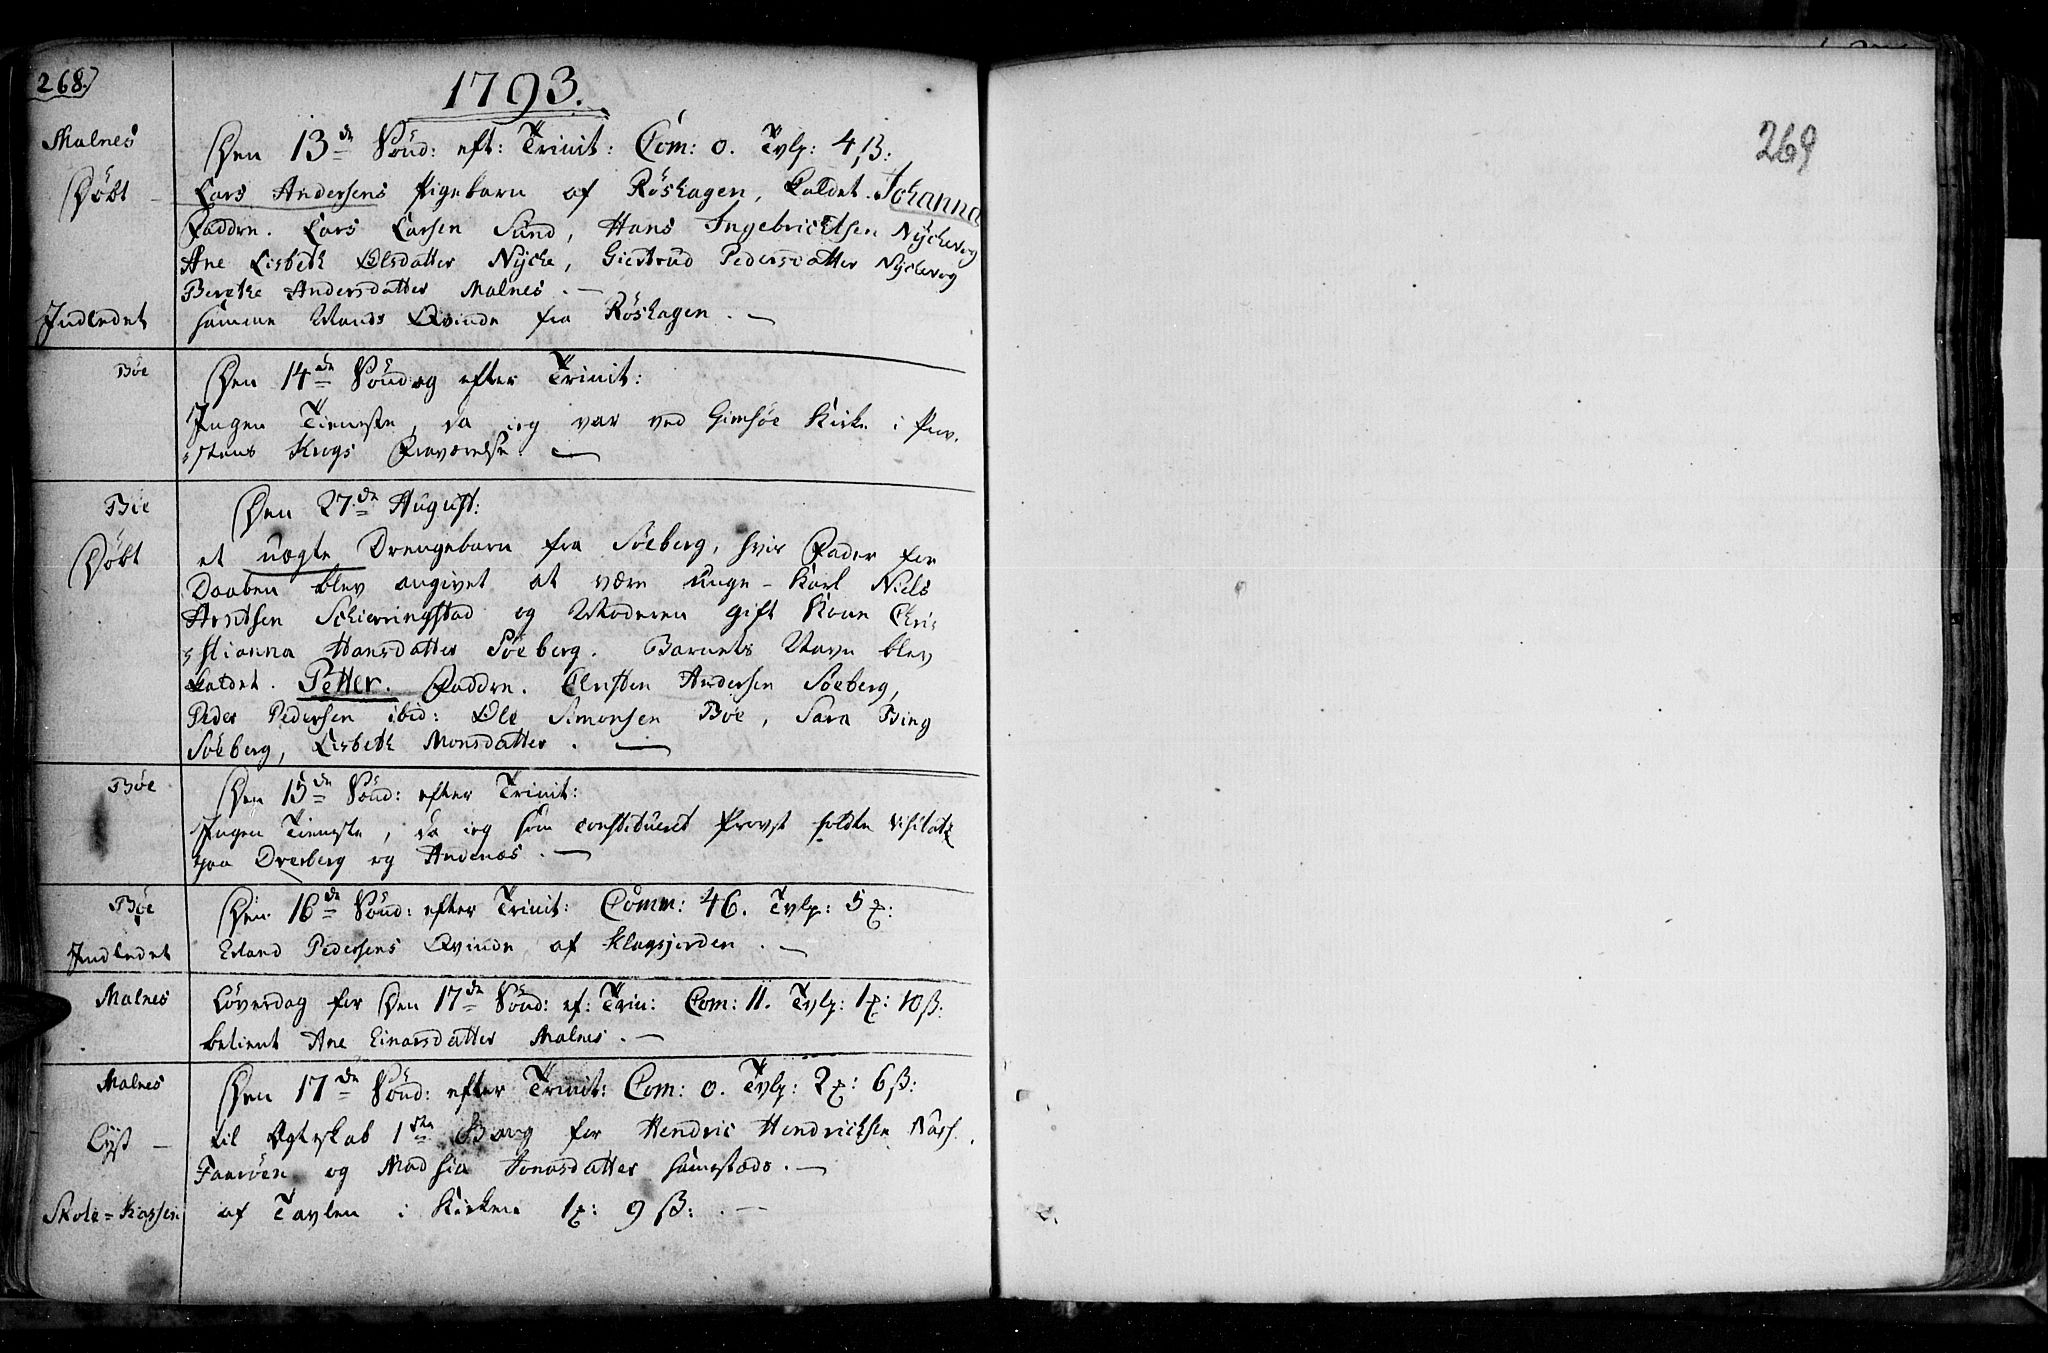 268.
1793.
Malnes
Den 13de Sönd: eft: Trinit: Com: 0. Tvlp: 4 ß:
Döbt – Lars Andersens Pigebarn af Röshagen, kaldet. Johanna
Faddre. Lars Larsen Sund, Hans Ingebrichtsen Nÿckevog
Ane Lisbeth Olsdatter Nÿcke, Giertrud Pedersdatter Nyckevog
Berethe Andersdatter Malnes. –
Indledet samme Mands Qvinde fra Röshagen. –
Böe Den 14de Söndag efter Trinit:
Ingen Tieneste, da ieg var ved Gimsöe Kirke i Prov-
stens Krogs Fraværelse. –
Böe Den 27de August:
Döbt et uægte Drengebarn fra Söeberg, hvis Fader for
Daaben blev angivet at være unge-Karl Niels
Arntsen Schierringstad og Moderen gift Kone Chri-
stianna Hansdatter Söeberg. Barnets Navn blev
kaldet. Petter. Faddre. Christen Andersen Söeberg,
Peder Pedersen ibid: Ole Simonsen Böe, Sara Bing
Söeberg, Lisbeth Monsdatter. –
Böe Den 15de Sönd: efter Trinit:
Ingen Tieneste, da ieg som constitueret Provst holdte visitatz
paa Dverberg og Andenæs. –
Böe Den 16de Sönd: efter Trinit: Comm: 46. Tvlp: 5
Indledet Erland Pedersens Qvinde af Klagsjorden. –
Malnes Löverdag for Den 17de Sönd: ef: Trin: Com: 11. Tvlp: 1 10 ß:
betient Ane Einarsdatter Malnes. –
Malnes Den 17de Sönd: efter Trinit: Com: 0. Tvlp: 2 6 ß:
Lÿst – til Ægteskab 1ste Gang for Hendric Hendrichsen
og Madsia Jonasdatter sammestæds. –
Skole-Kassen af Tavlen i Kirken 1 9 ß: –
269